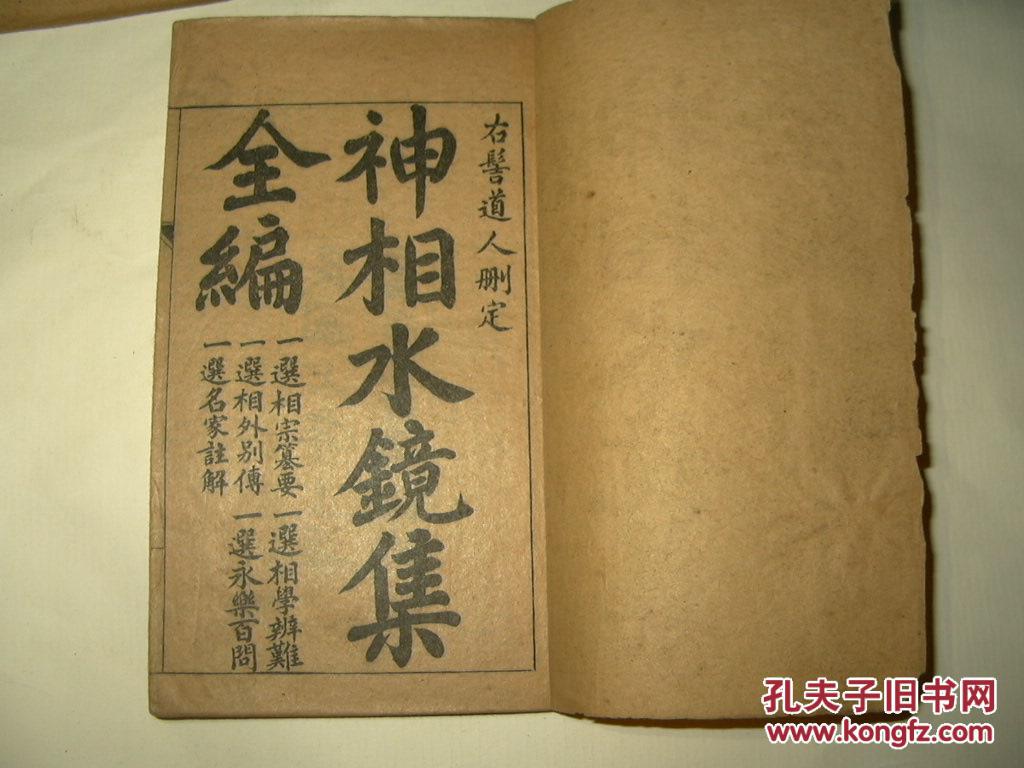 右髻道人刪定
神相水鏡集
全編
一選相宗纂要
一選相學辨難
一選相外別傳
一選永樂百問
一選名家註解
孔夫子旧书网
www.kongfz.com